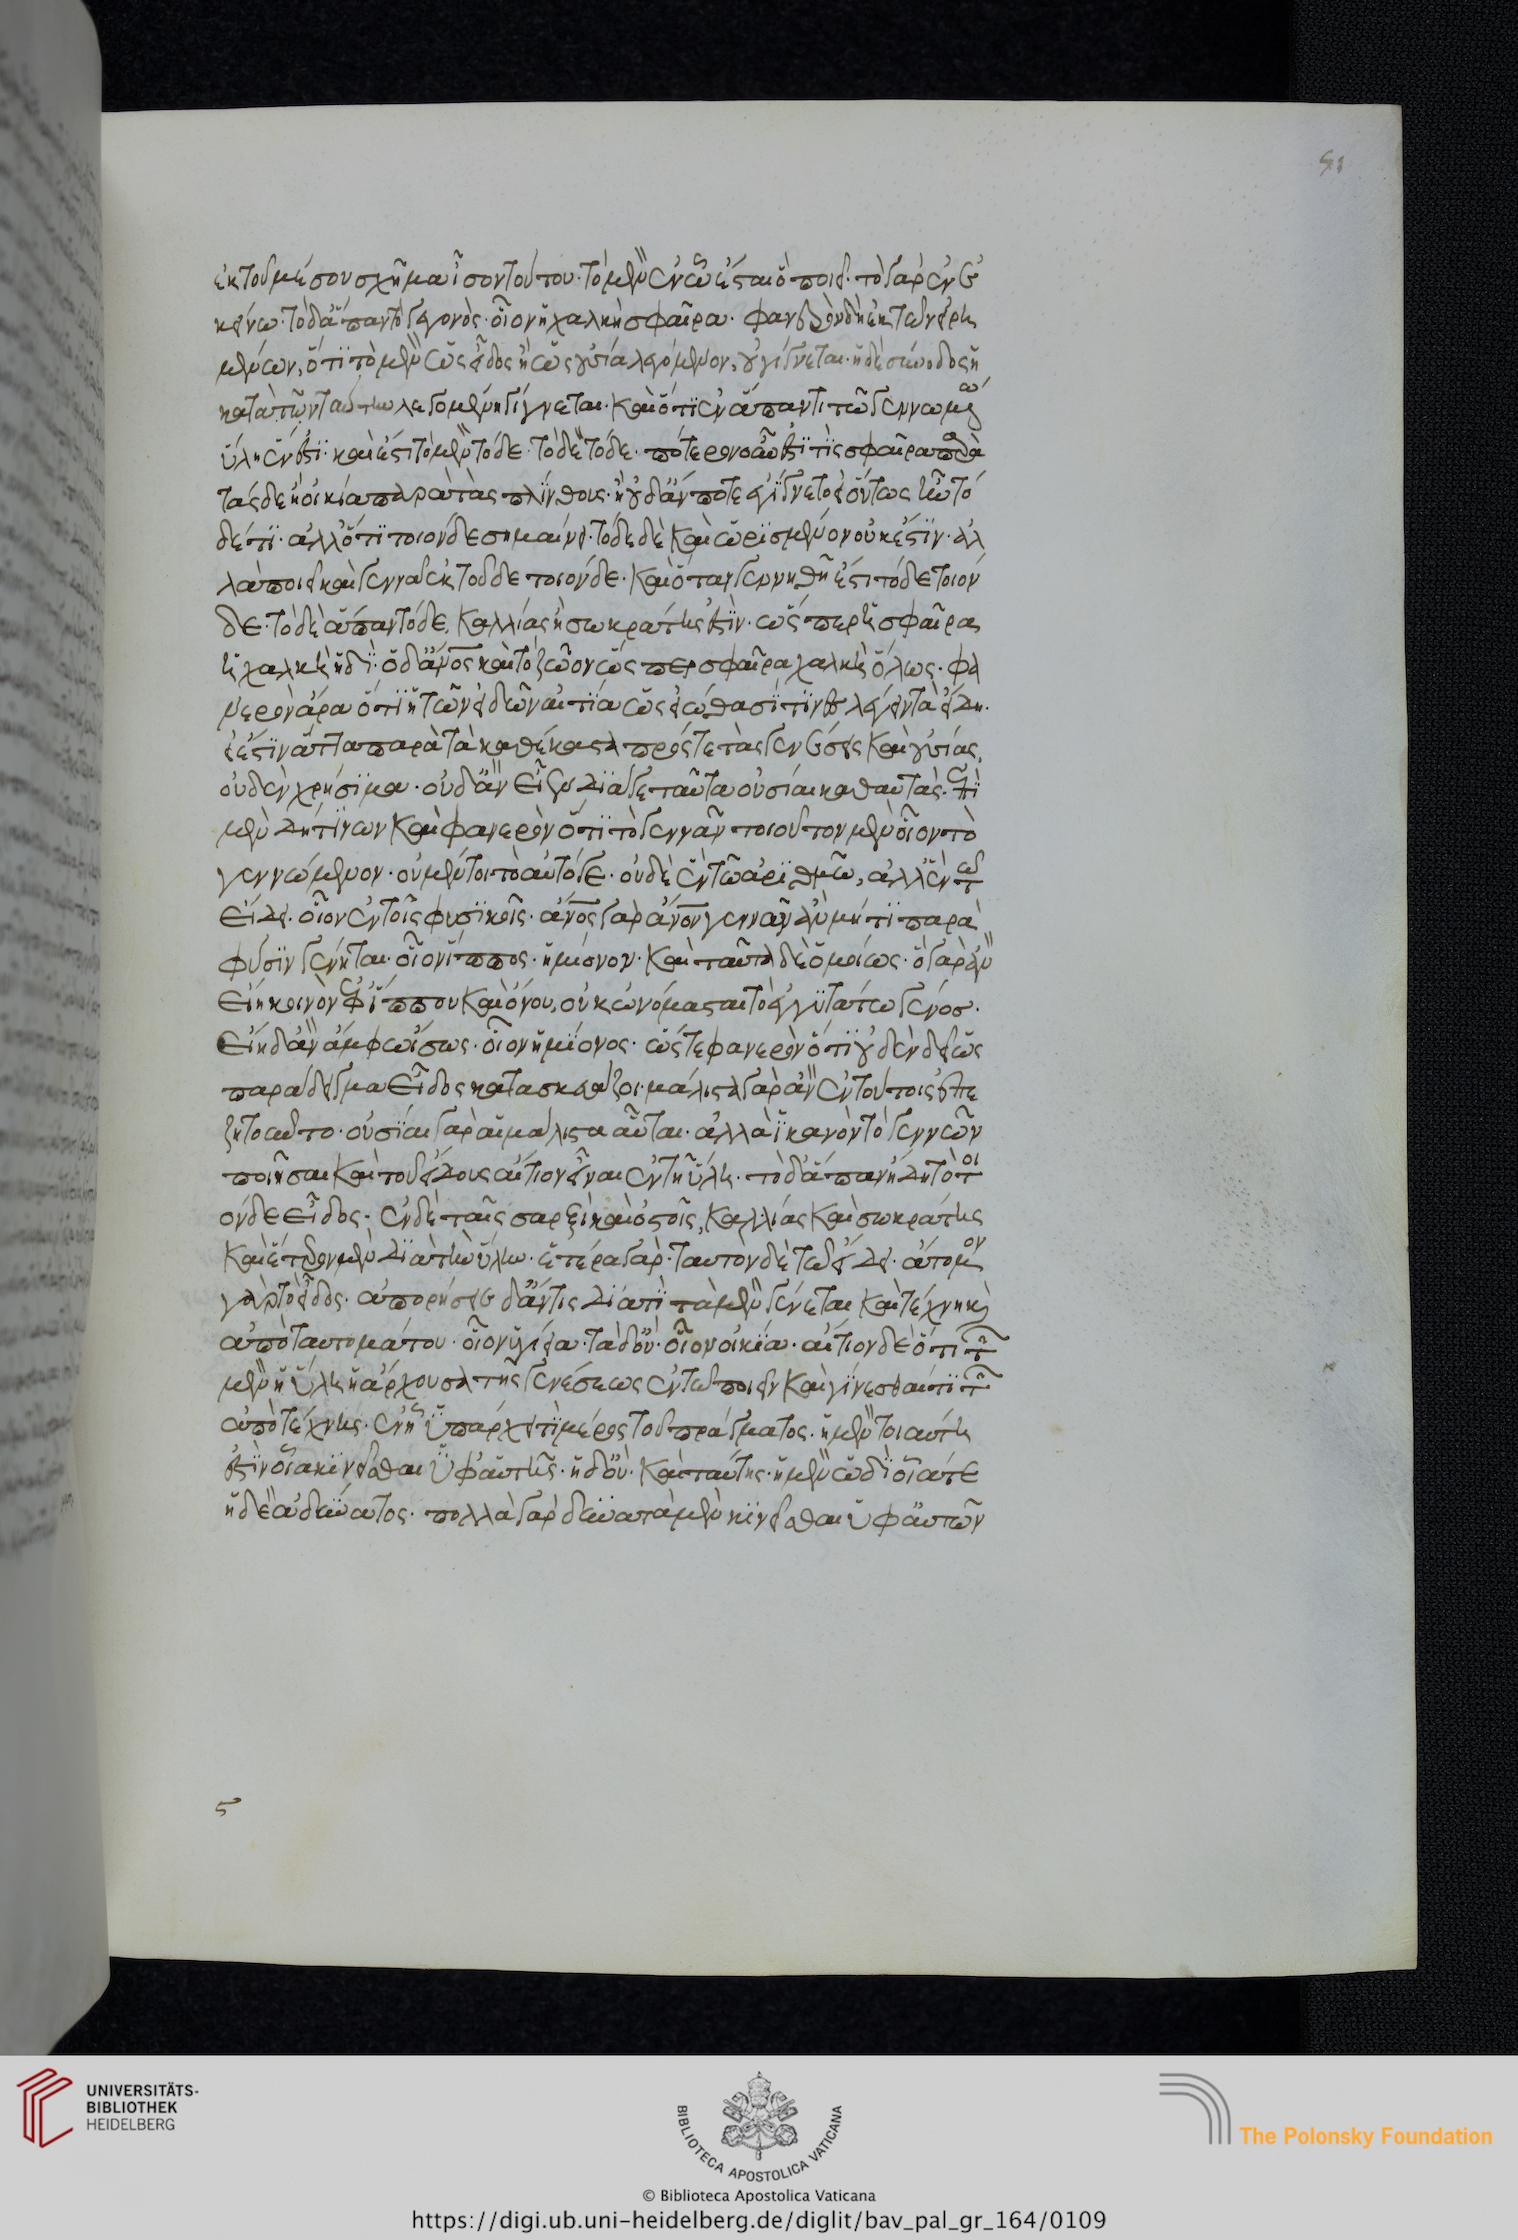 51
ἐκ τοῦ μέσου σχῆμα ἶσον τούτου· τὸ μὲν ἐν ᾧ ἔσται ὃ ποιεῖ· τὸ γὰρ ἐν ἐ
κείνω· τὸ δ' ἅπαν τὸ γεγονὸς· οἷον ἡ χαλκὴ σφαῖρα· φανερὸν δὴ ἐκ τῶν εἰρη
μένων, ὅτι τὸ μὲν ὡς εἶδος ἢ ὡς οὐσία λεγόμενον, οὐ γίγνεται· ἡ δὲ σύνοδος ἡ
κατὰ ταύτην λεγομένη γίγνεται· καὶ ὅτι ἐν ἅπαντι τῶ γεννωμένω
ὕλη ἔνεστι· καὶ ἔστι τὸ μὲν τόδε· τὸ δὲ τόδε· πότερον οὖν ἔστι τὶς σφαῖρα παρὰ
τάσδε ἢ οἰκία παρὰ τὰς πλίνθους· ἢ οὐδ' ἄν ποτε ἐγίγνετο εἰ οὕτως ἦν τό
δέ τι· ἀλλ' ὅτι τοιόνδε σημαίνει· τόδε δὲ καὶ ὡρισμένον οὐκ ἔστιν· ἀλ
λὰ ποιεῖ καὶ γεννᾶ ἐκ τοῦδε τοιόνδε· καὶ ὅταν γεννηθῆ ἔστι τόδε τοιόν
δε· τὸ δὲ ἅπαν τόδε, καλλίας ἢ σωκράτης ἐστὶν· ὥσπερ ἡ σφαῖρα
ἡ χαλκὴ ἡδί· ὁ δ' ἄνος καὶ τὸ ζῶον ὥσπερ σφαῖρα χαλκὴ ὅλως· φα
νερὸν ἄρα ὅτι ἡ τῶν εἰδῶν αἰτία ὡς εἰώθασί τινες λέγειν τὰ εἴδη·
εἰ ἔστιν ἄττα παρὰ τὰ καθέκαστα πρός τε τὰς γενέσεις καὶ οὐσίας,
οὐδὲν χρήσιμα· οὐδ' ἂν εἶεν διά γε ταῦτα οὐσίαι καθαυτὰς· ἐπὶ
μὲν δή τινων καὶ φανερὸν ὅτι τὸ γεννᾶν τοιοῦτον μὲν οἷον τὸ
γεννώμενον· οὐ μέντοι τὸ αὐτό γε· οὐδὲ ἓν τῶ ἀριθμῶ, ἀλλ' ἓν τῶ
εἴδει· οἷον ἐν τοῖς φυσικοῖς· ἄνος γὰρ ἄνον γεννᾶ ἂν μή τι παρὰ
φύσιν γένηται· οἷον ἵππος· ἡμίονον· καὶ ταῦτα δὲ ὁμοίως· ὃ γὰρ ἂν
εἴη κοινὸν ἐφ' ἵππου καὶ ὄνου, οὐκ ὠνόμασται τὸ ἐγγυτάτω γένοσ·
εἴη δ' ἂν ἄμφω ἴσως· οἷον ἡμίονος· ὥστε φανερὸν ὅτι οὐδὲν δεῖ ὡς
παράδειγμα εἶδος κατασκευάζοι· μάλιστα γὰρ ἂν ἐν τούτοις ἐπε
ζητοῦντο· οὐσίαι γὰρ αἱ μάλιστα αὗται· ἀλλὰ ἱκανὸν τὸ γεννῶν
ποιῆσαι καὶ τοῦ εἴδους αἴτιον εἶναι ἐν τῆ ὕλη· τὸ δ' ἅπαν ἤδη τὸ τοι
όνδε εἶδος· ἐν δὲ ταῖς σαρξὶ καὶ ὀστοῖς, καλλίας καὶ σωκράτης
καὶ ἕτερον μὲν διὰ τὴν ὕλην· ἑτέρα γὰρ· ταυτὸν δὲ τῶ εἴδει· ἄτομον
γὰρ τὸ εἶδος· ἀπορήσειε δ' ἄν τις διατί τὰ μὲν γίνεται καὶ τέχνη καὶ
ἀπὸ ταυτομάτου· οἷον ὑγίεια· τὰ δ' οὔ· οἷον οἰκία· αἴτιον δὲ ὅτι τῶν
μὲν ἡ ὕλη ἡ ἄρχουσα τῆς γενέσεως ἐν τῶ ποιεῖν καὶ γίνεσθαί τι τῶν
ἀπὸ τέχνης· ἐν ἧ ὑπάρχει τὶ μέρος τοῦ πράγματος· ἡ μὲν τοιαύτη
ἐστὶν οἵα κινεῖσθαι ὑφ' αὑτῆς· ἡ δ' οὔ· καὶ ταύτης· ἡ μὲν ὡδὶ οἵα τε
ἡ δὲ ἀδύνατος· πολλὰ γὰρ δύναται μὲν κινεῖσθαι ὑφ' αὑτῶν
ς
UNIVERSITÄTS-
BIBLIOTHEK
HEIDELBERG
BIBLIOTECA APOSTOLICA VATICANA
The Polonsky Foundation
© Biblioteca Apostolica Vaticana
https://digi.ub.uni-heidelberg.de/diglit/bav_pal_gr_164/0109